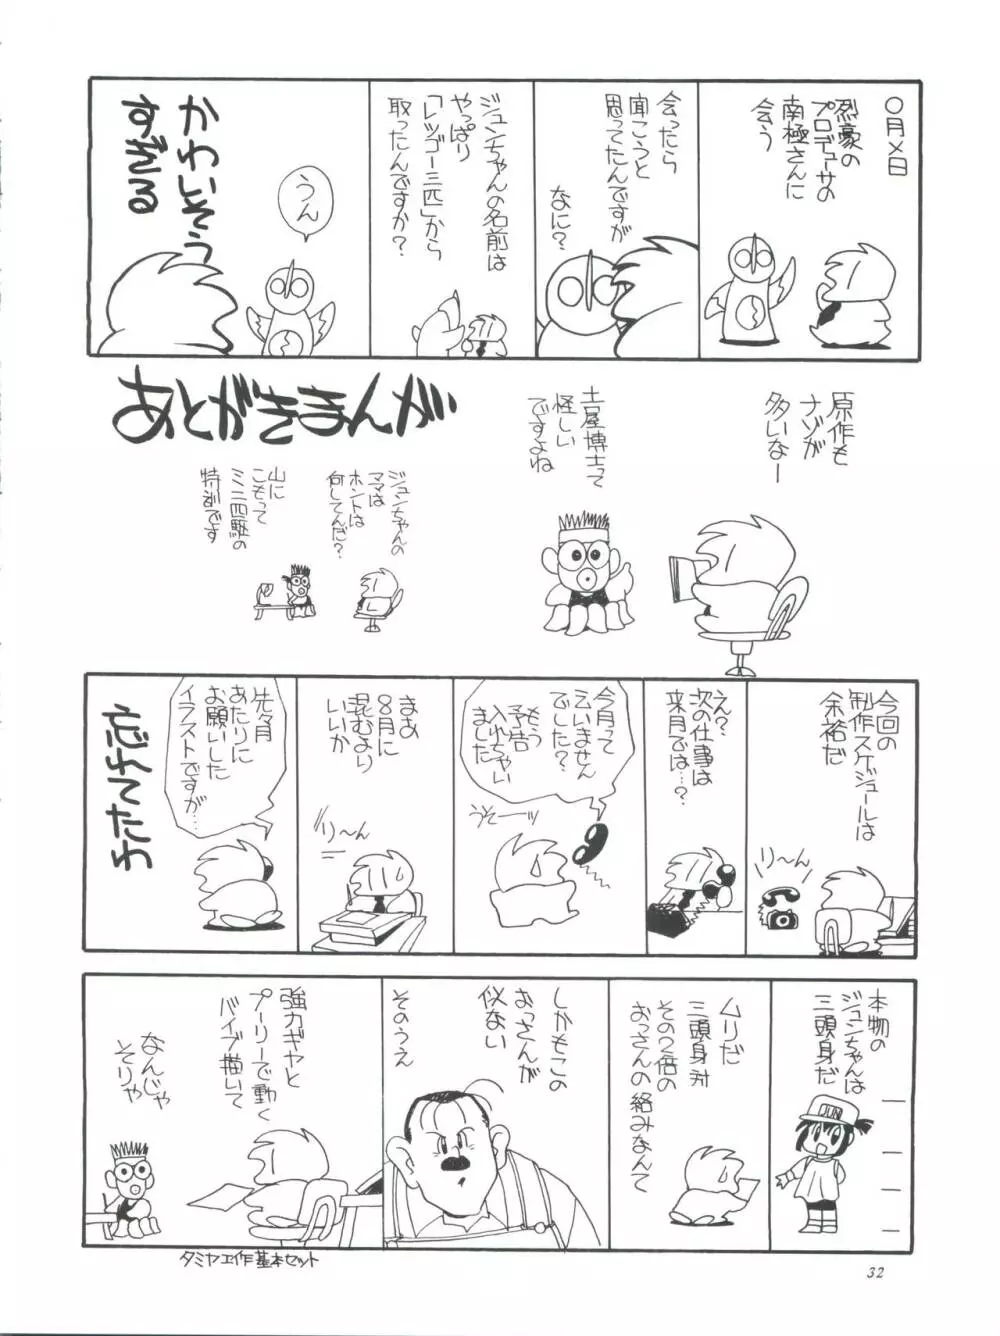 〇月×日
烈豪の
プロデューサの
南極さんに
会う
会ったら
聞こうと
思ってたんですが
なに?
ジュンちゃんの名前は
やっぱり
「レッツゴー三匹」から
取ったんですか?
うん
かわいそう
すぎる
あとがきまんが
原作も
ナゾが
多いなー
土屋博士って
怪しい
ですよね
ジュンちゃんの
ママは
ホントは
何してんだ?
山に
こもって
ミニ四駆の
特訓です
今回の
制作スケジュールは
余裕だ
り〜ん
え?
次の仕事は
来月では…?
今月って
云いません
でした?
もう
予告
入れちゃい
ました
うそーッ
まあ
8月に
混むより
いいか
り〜ん
先々月
あたりに
お願いした
イラストですが…
忘れてたわ
本物の
ジュンちゃんは
三頭身だ
JUN
ムリだ
三頭身対
その2倍の
おっさんの絡みなんて
しかもこの
おっさんが
似ない
そのうえ
強力ギヤと
プーリーで動く
バイブ描いて
なんじゃ
そりゃ
タミヤ工作基本セット
32